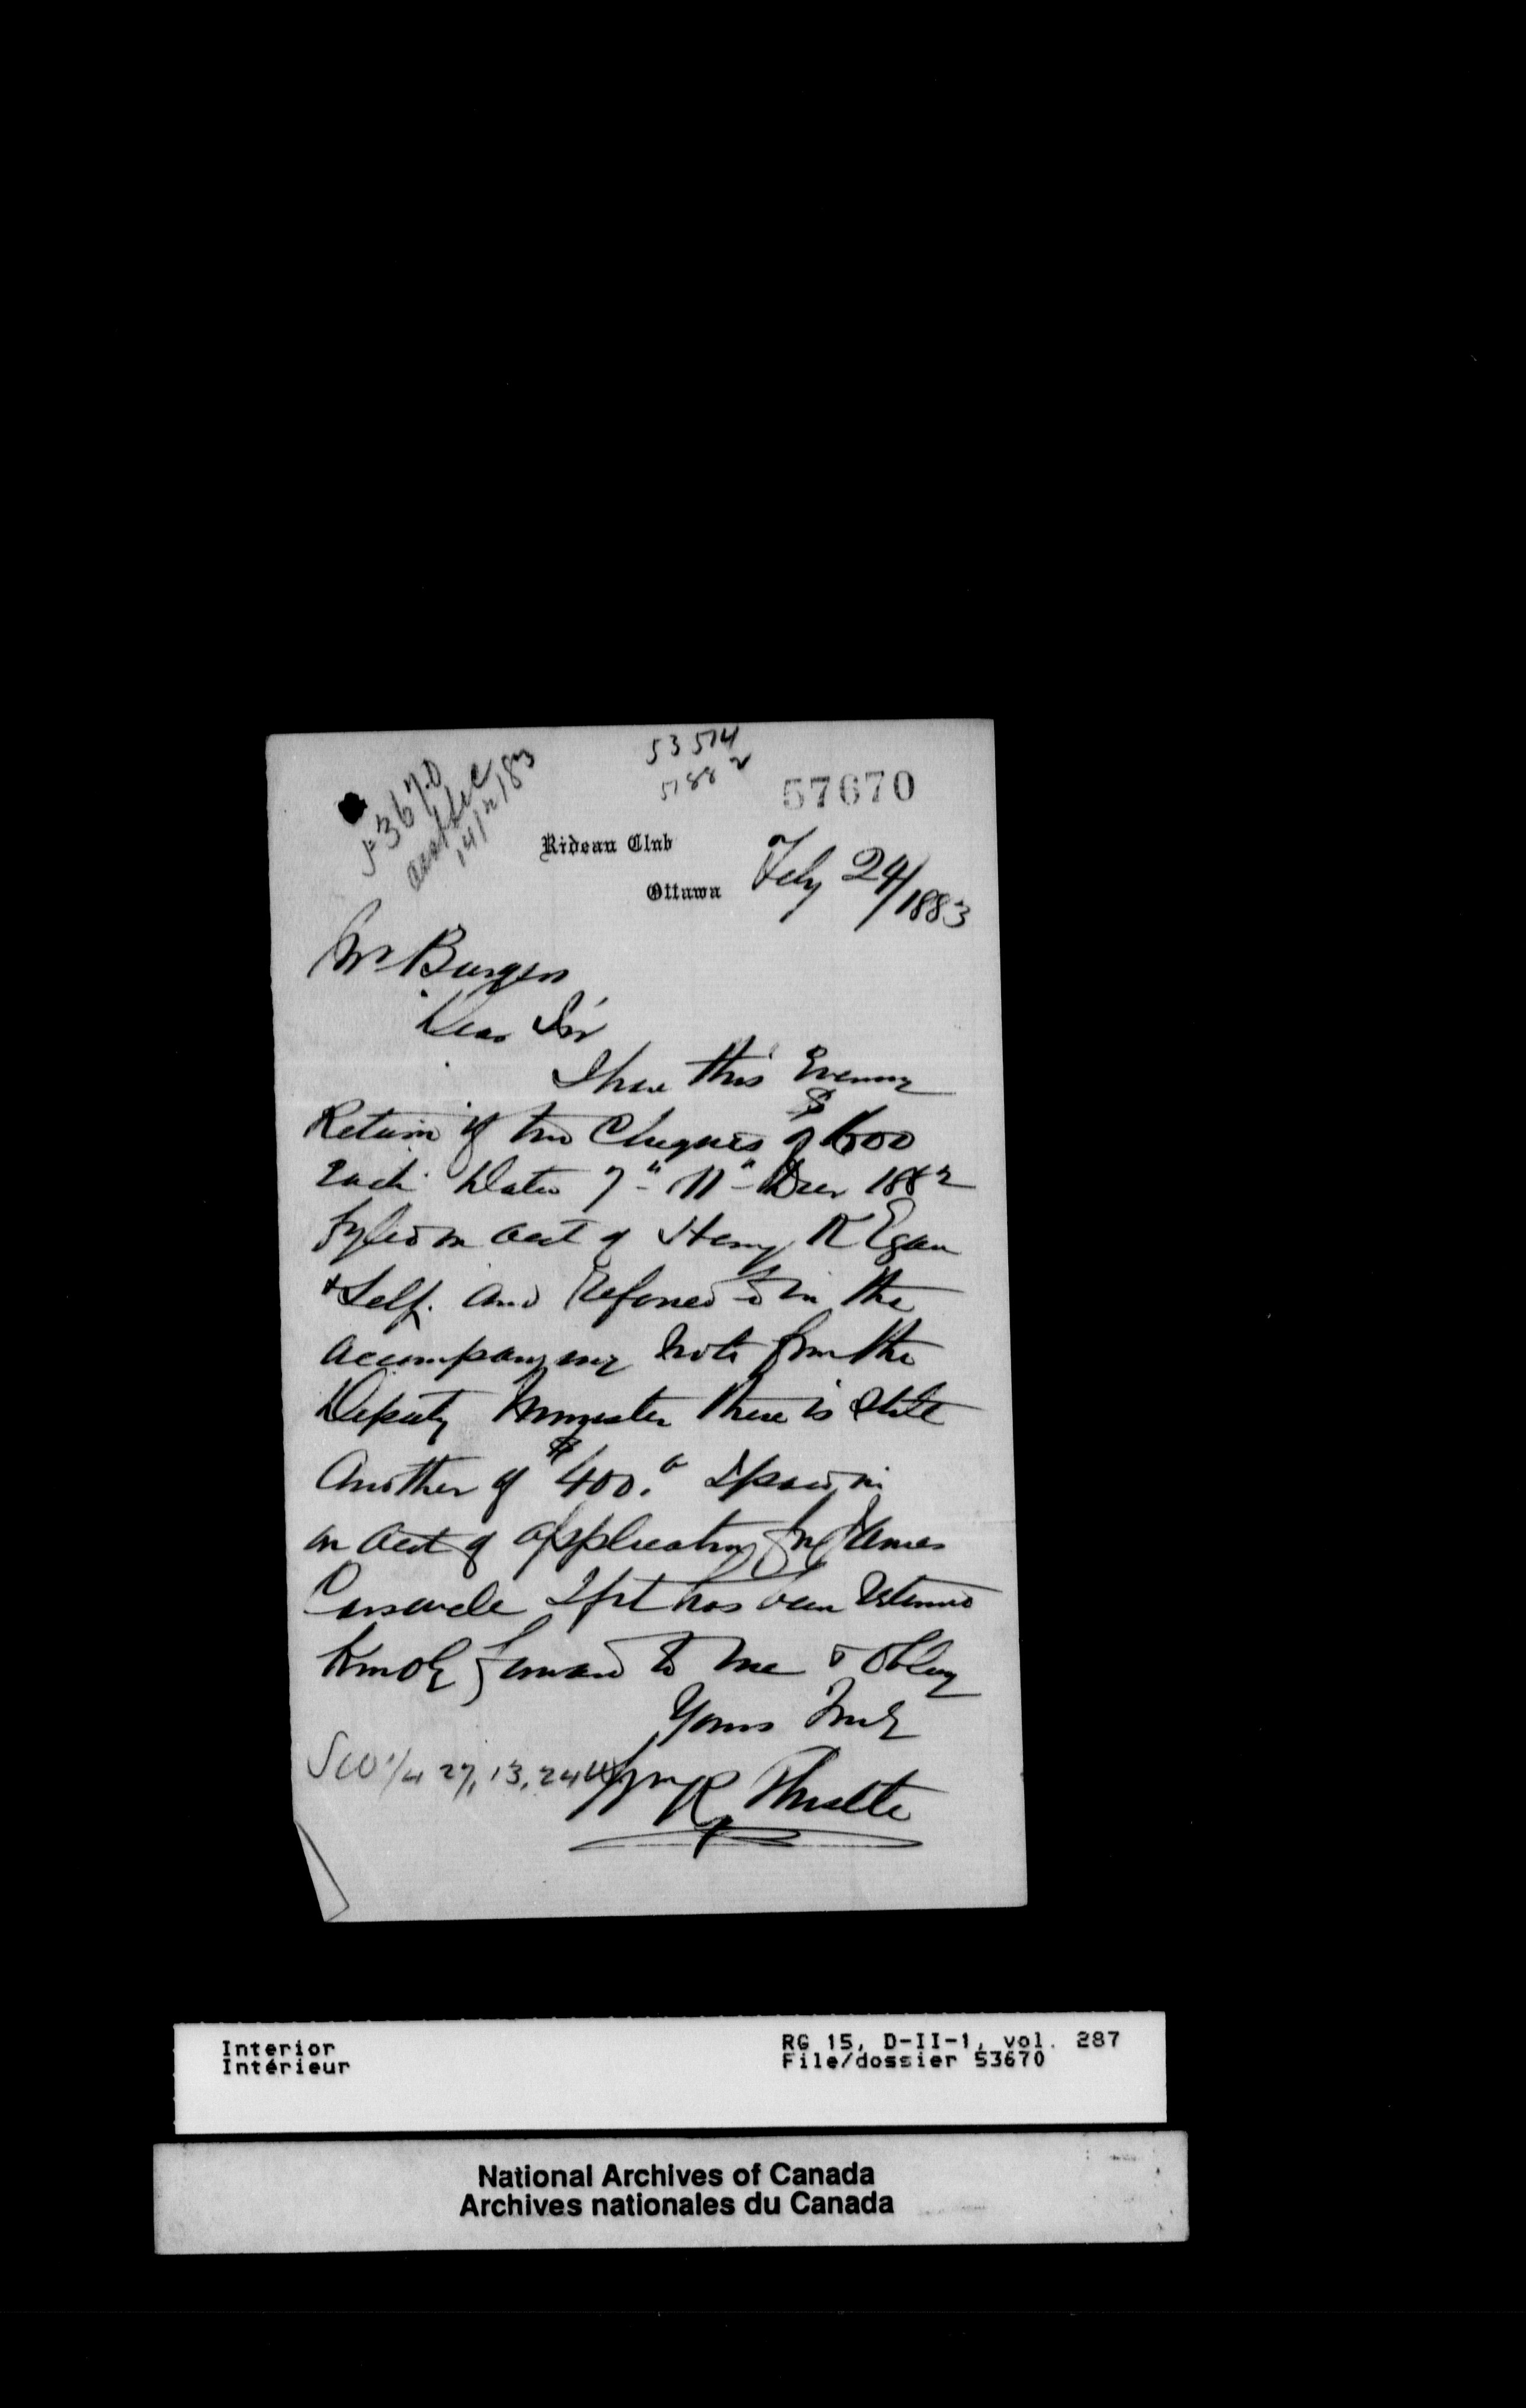 53670
53514
5188 2
57670
Rideau Club
Ottawa
Feby 24/1883
Mr Burgess
Dear Sir
I have this Evening
Return of two Cheques of $1600
Each Dated 7" 11" Decr 1882
fyled on acct of Henry K Egan
& Self. and Referred to in the
accompanying Note from the
Deputy Minister there is still
Another of $400.
on acct of application for James
If it has been returned
Kindly forward to me & Oblig
Yours Truly
SW 1/4 27, 13, 24
R Thistle
Interior
Intérieur
RG 15, D-II-1, vol. 287
File/dossier 53670
National Archives of Canada
Archives nationales du Canada